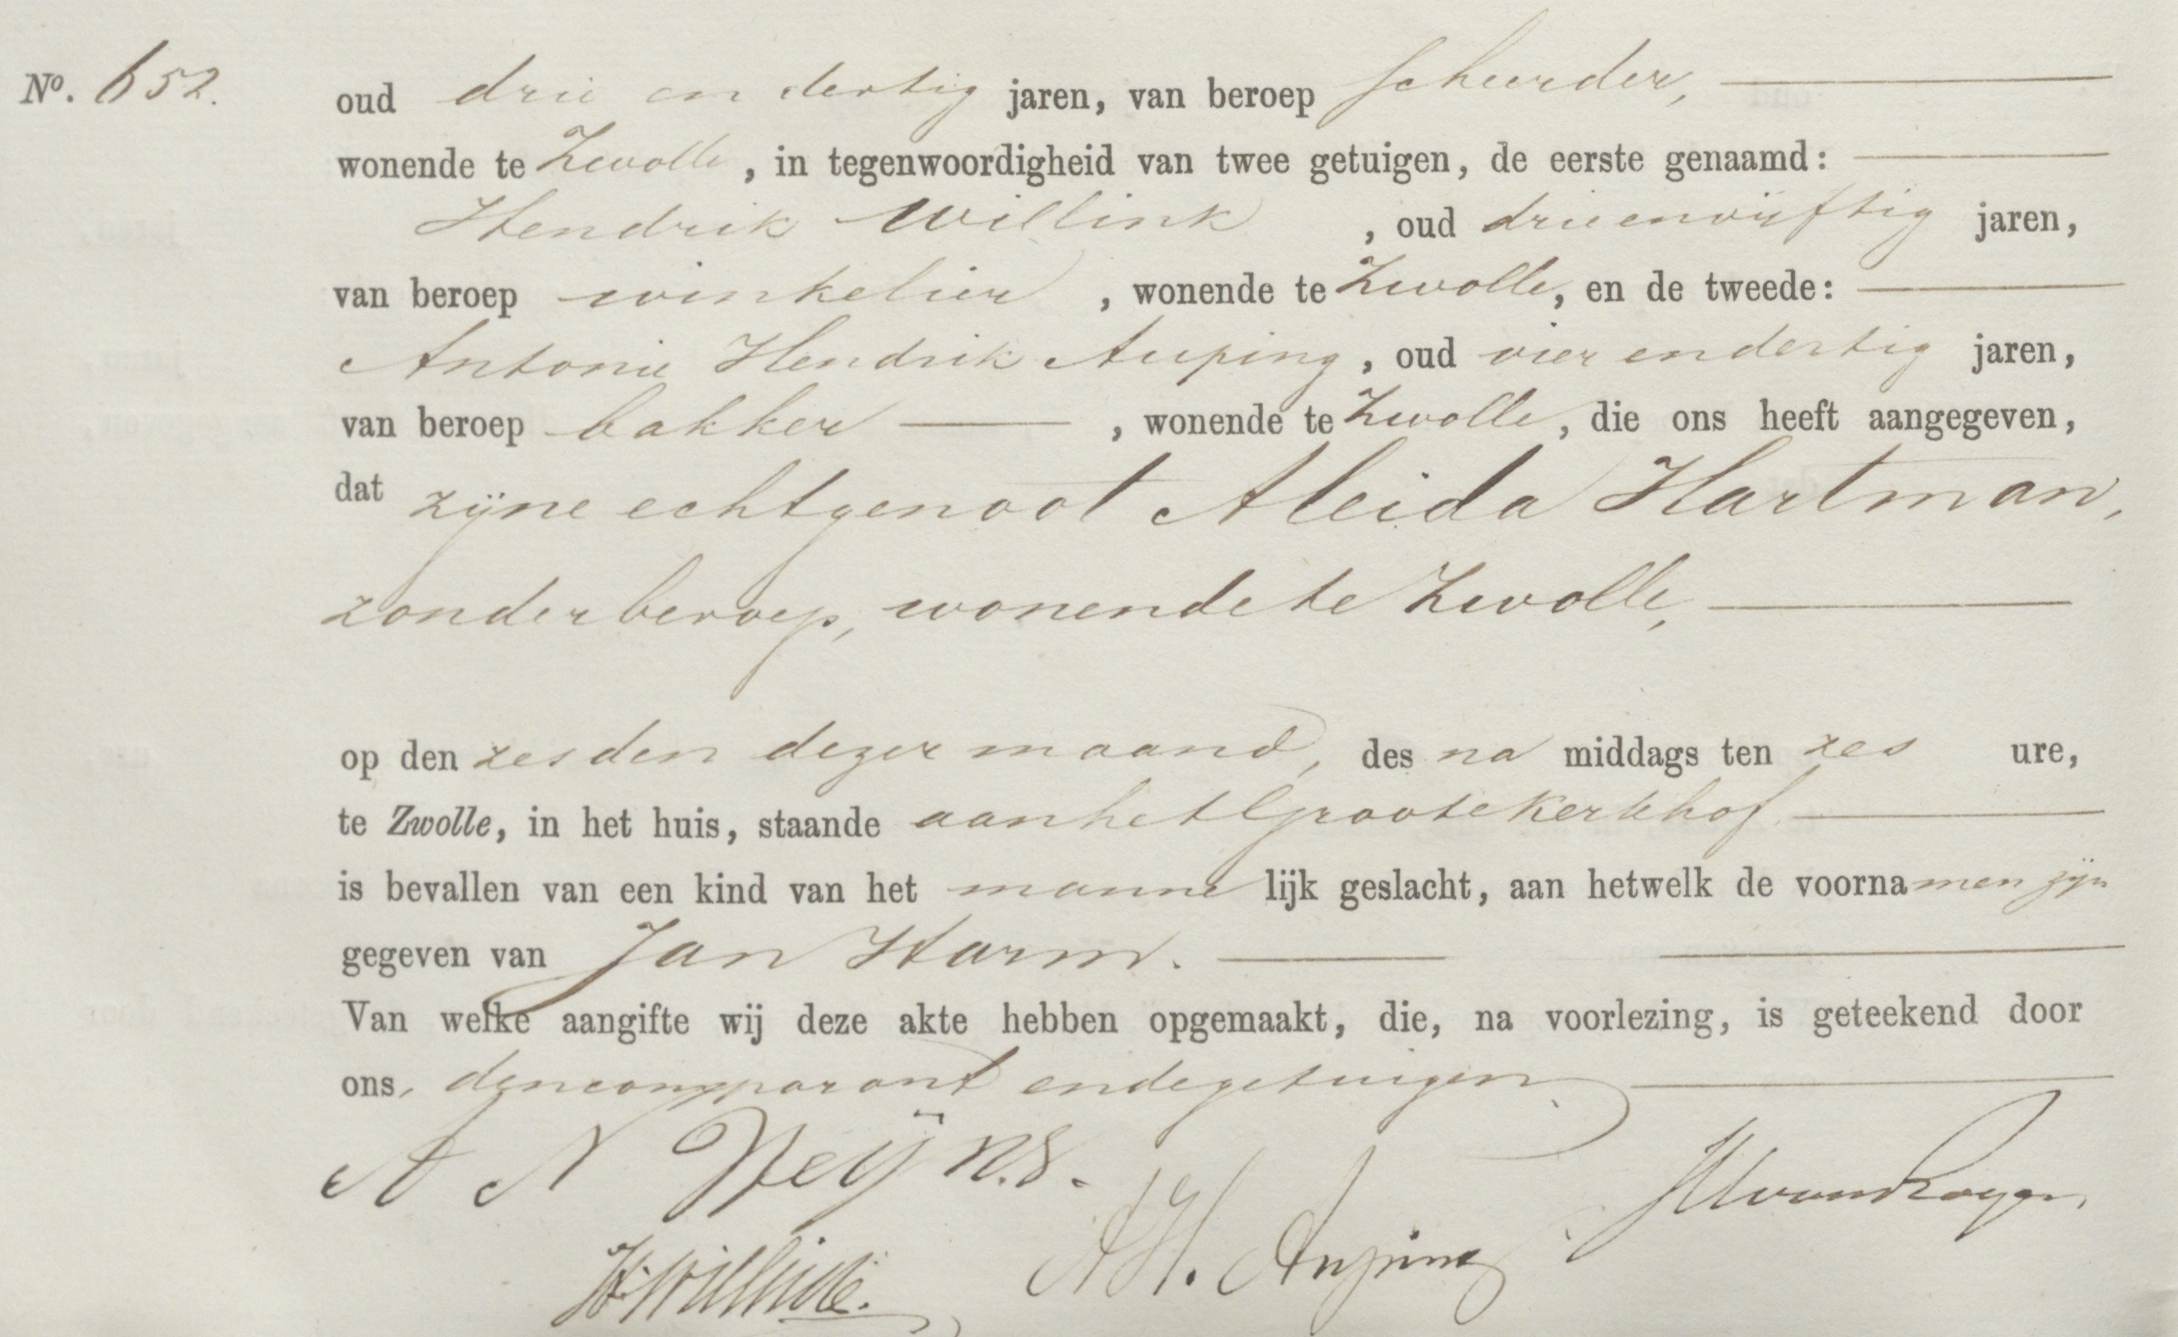 No. 652.
oud drie en dertig jaren, van beroep scheerder,
wonende te Zwolle, in tegenwoordigheid van twee getuigen, de eerste genaamd:
Hendrik Willink, oud drieenvijftig jaren,
van beroep winkelier, wonende te Zwolle, en de tweede:
Antonie Hendrik Auping, oud vierendertig jaren,
van beroep bakker, wonende te Zwolle, die ons heeft aangegeven,
dat zijne echtgenoot Aleida Hartman,
zonder beroep, wonende te Zwolle,
op den zesden dezer maand, des na middags ten zes ure,
te Zwolle, in het huis, staande aan het Grootekerkhof
is bevallen van een kind van het manne lijk geslacht, aan hetwelk de voornamen zijn
gegeven van Jan Harm.
Van welke aangifte wij deze akte hebben opgemaakt, die, na voorlezing, is geteekend door
ons, den comparant en de getuigen
A N Heijns.
H Willink.
AH. Auping